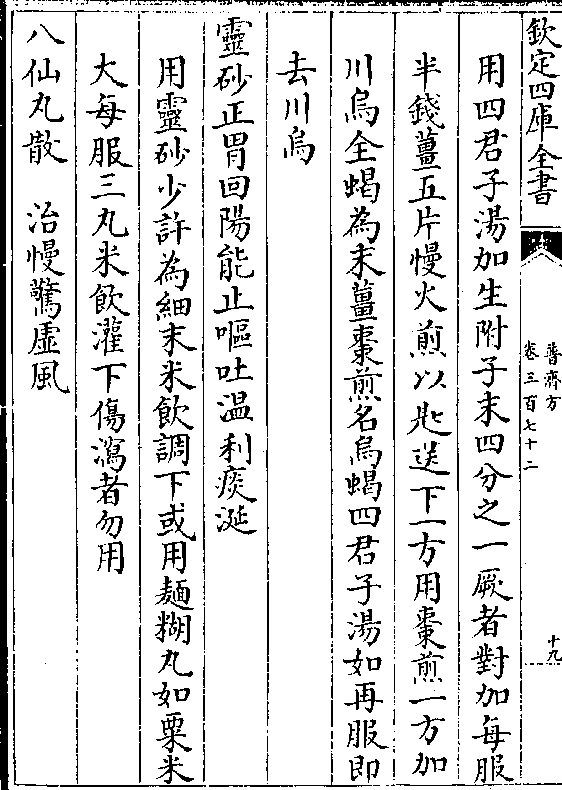 欽定四庫全書
普濟方
卷三百七十二
十九
用四君子湯加生附子末四分之一厥者對加每服
半錢薑五片慢火煎以匙送下一方用棗煎一方加
川烏全蝎為末薑棗煎名烏蝎四君子湯如再服即
去川烏
靈砂正胃回陽能止嘔吐温利痰涎
用靈砂少許為細末米飲調下或用麺糊丸如粟米
大每服三丸米飲灌下傷瀉者勿用
八仙丸散　治慢驚虛風